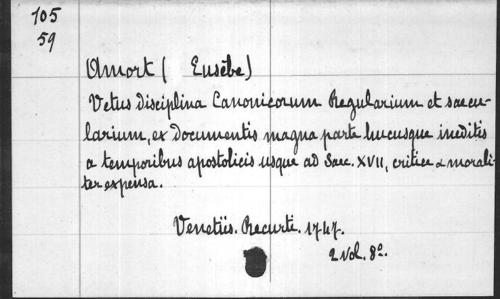 105
59
Amort ( Eusèbe)
Vetus Disciplina Canonicorum Regularium et saecu-
larium, ex Documentis magna parte hucusque ineditis
a temporibus apostolicis usque ad Saec. XVII, critice & morali-
ter expensa.
Venetiis. Recurti. 1747.
2 vol. 8º.